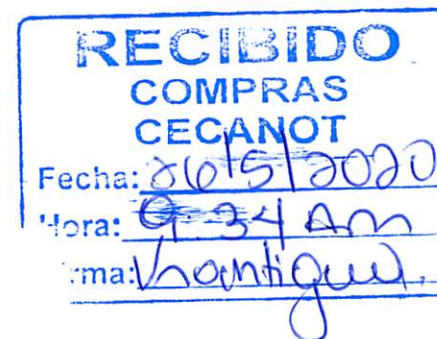 RECIBIDO
COMPRAS
CECANOT
Fecha: 26/5/2020
Hora: 9:34 Am
rma: